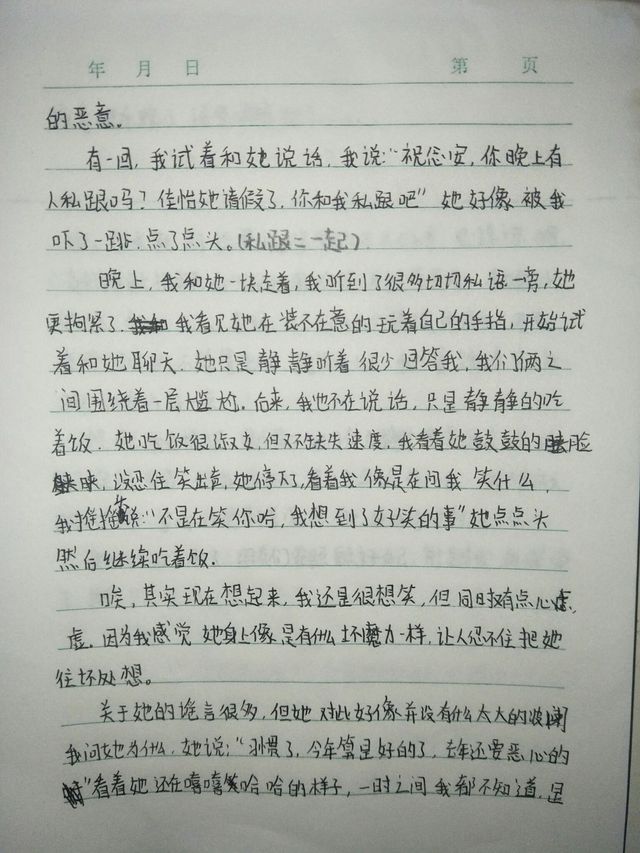 年 月 日 第 页
的恶意.
有一回,我试着和她说话,我说:"祝念安,你晚上有
人私跟吗?佳怡她请假了,你和我私跟吧"她好像被我
吓了一跳.点了点头。(私跟=一起)
晚上,我和她一块走着,我听到了很多切切私语一旁,她
更拘紧了.我看见她在装不在意的玩着自己的手指,开始试
着和她聊天.她只是静静听着很少回答我,我们俩之
间围绕着一层尴尬.后来,我也不在说话,只是静静的吃
着饭.她吃饭很淑女,但又不缺失速度,我看着她鼓鼓的脸
没忍住笑出声,她停下了,看着我像是在问我笑什么,
我摆摆手说:"不是在笑你哈,我想到了好笑的事"她点点头
然后继续吃着饭.
唉,其实现在想起来,我还是很想笑,但同时有点心虚
虚.因为我感觉她身上像是有什么坏魔力一样,让人忍不住把她
往坏处想。
关于她的谣言很多,但她对此好像并没有什么太大的波阑
我问她为什么,她说:"习惯了,今年算是好的了,去年还要恶心的
"看着她还在嘻嘻哈哈的样子,一时之间我都不知道,是